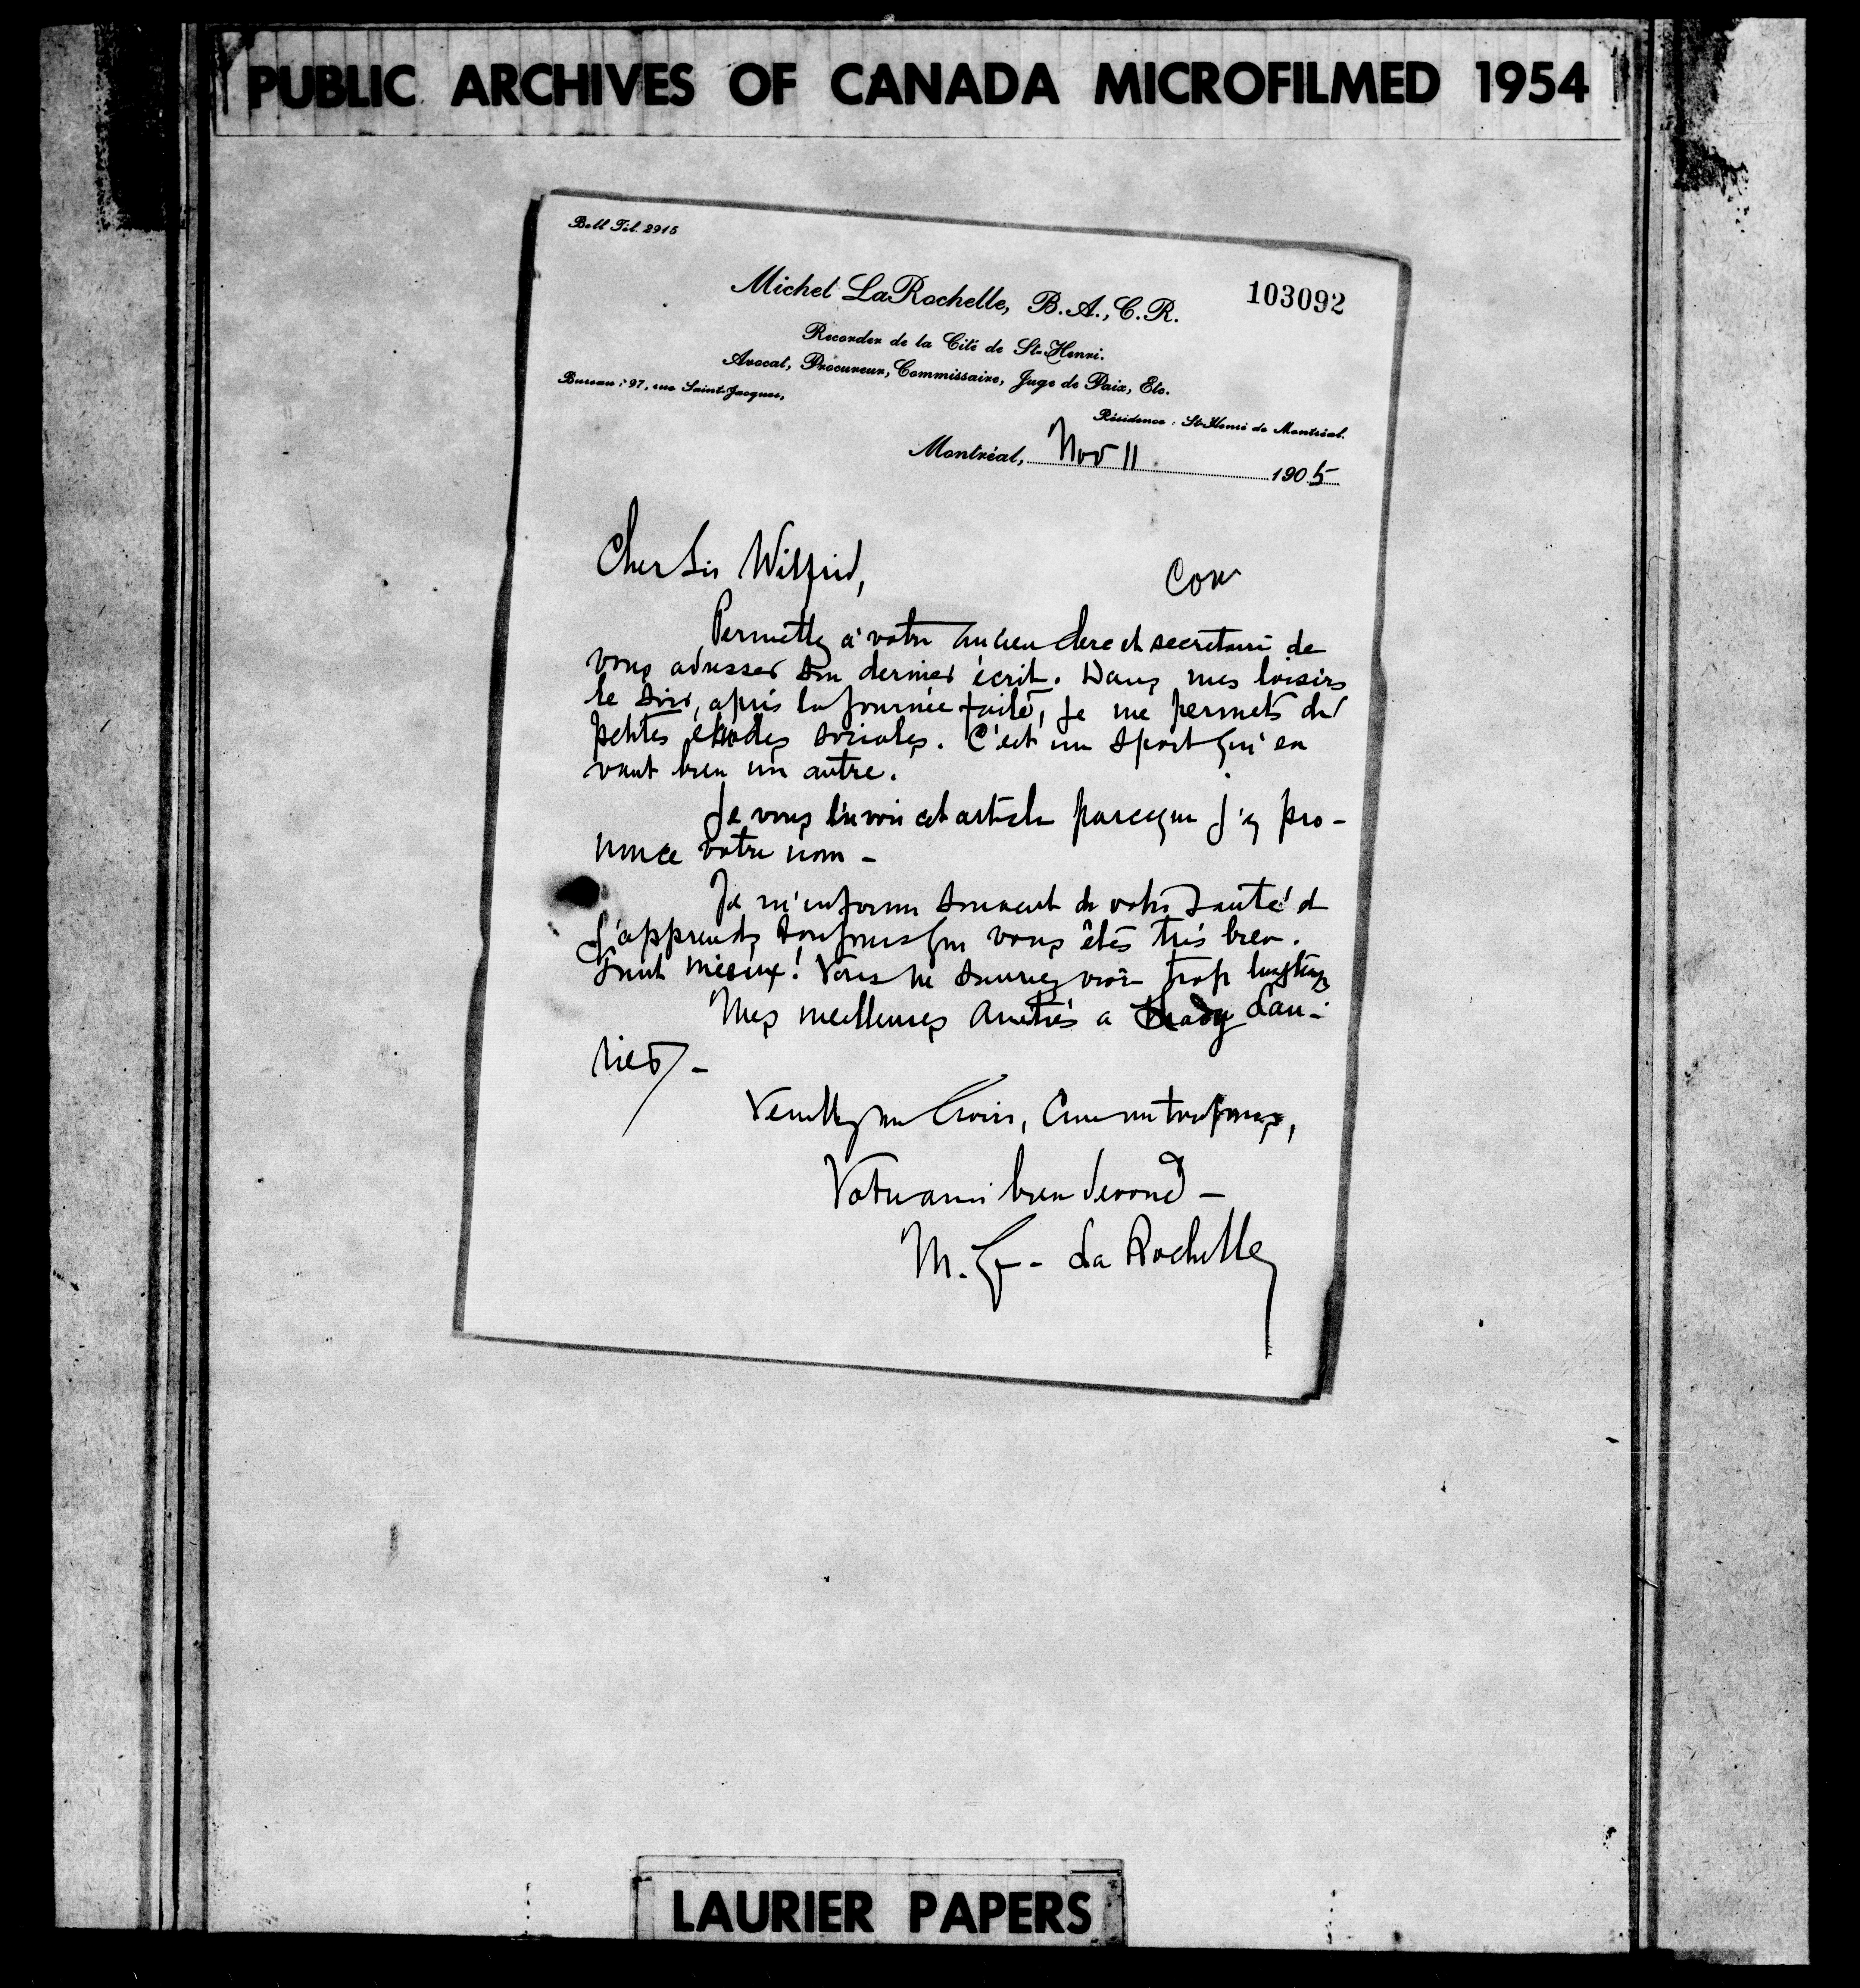 PUBLIC ARCHIVES OF CANADA MICROFILMED 1954
Bell Tél. 2915
Michel LaRochelle, B.A., C.R.
103092
Recorder de la Cité de St-Henri.
Avocat, Procureur, Commissaire, Juge de Paix, Etc.
Bureau : 97, rue Saint-Jacques,
Résidence : St-Henri de Montréal.
Montréal, Nov 11 1905
Cher Sir Wilfrid,
Con
Permettez à votre ancien clerc et secretaire de
vous adresser son dernier écrit. Dans mes loisirs
le soir, après la journée faite, je me permets de
petites études sociales. C'est un sport qui en
vaut bien un autre.
Je vous envoi cet article parceque j'y pro-
nonce votre nom -
Je m'informe souvent de votre santé et
j'apprends toujours que vous êtes très bien.
Tant mieux! Vous ne sauriez vivre trop longtemps
Mes meilleures amitiés a Lady Lau-
rier -
Veuillez me croire, comme toujours,
Votre ami bien dévoué -
M. G. - La Rochelle
LAURIER PAPERS